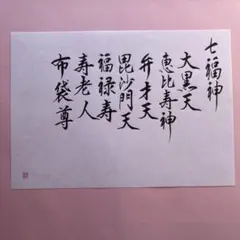 七福神
大黒天
恵比寿神
弁才天
毘沙門天
福禄寿
寿老人
布袋尊